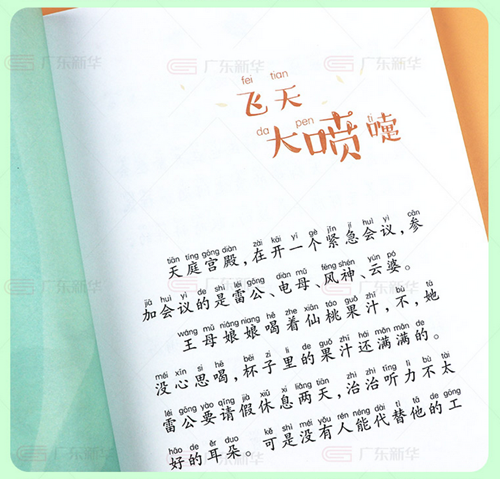 广东新华 广东新华
fēi tiān
飞天
dà pēn tì
大喷嚏
tiān tíng gōng diàn zài kāi yí gè jǐn jí huì yì cān
天庭宫殿，在开一个紧急会议，参
jiā huì yì de shì léi gōng diàn mǔ fēng shén yún pó
加会议的是雷公、电母、风神、云婆。
wáng mǔ niáng niang hē zhe xiān táo guǒ zhī bù tā
王母娘娘喝着仙桃果汁，不，她
méi xīn si hē bēi zi li de guǒ zhī hái mǎn mǎn de
没心思喝，杯子里的果汁还满满的。
léi gōng yào qǐng jià xiū xi liǎng tiān zhì zhi tīng lì bú tài
雷公要请假休息两天，治治听力不太
hǎo de ěr duo kě shì méi yǒu rén néng dài tì tā de gōng
好的耳朵。可是没有人能代替他的工
广东新华 广东新华